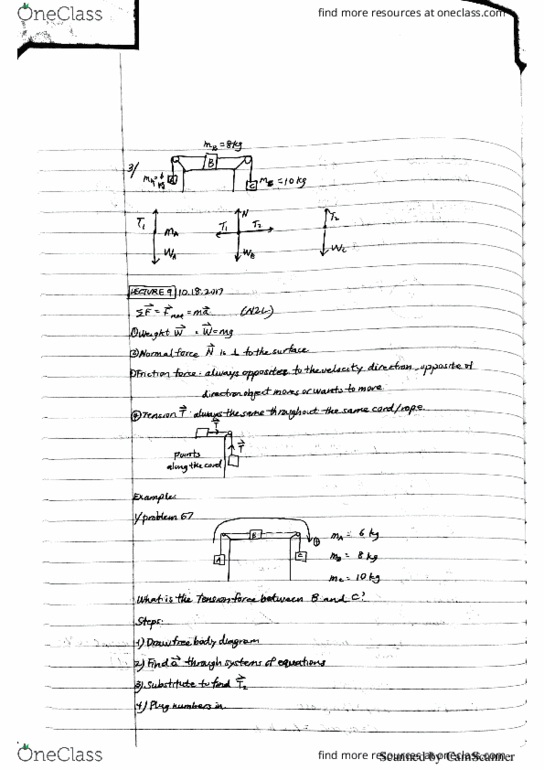 OneClass
find more resources at oneclass.com
m_B = 8kg
3/
B
C
m_C = 10 kg
T₁ m_A W_A
N T₁ T₂ W_B
T₂ W_C
LECTURE 9 10.18.2017
ΣF⃗ = F⃗_net = ma⃗ (N2L)
①Weight W⃗ · W⃗=mg
②Normal force N⃗ is ⊥ to the surface
Friction force · always opposites to the velocity direction, opposite of
direction object moves or wants to move.
④Tension T⃗ · always the same throughout the same cord/rope.
T⃗
T⃗
points
along the cord
Example:
1/ problem 57
A B C ⊕
m_A = 6 kg
m_B = 8 kg
m_C = 10 kg
What is the Tension force between B and C?
Steps:
1) Draw free body diagram
2) Find a⃗ through systems of equations
3) Substitute to find T⃗₂
4) Plug numbers in.
OneClass
find more resources at oneclass.com
Scanned by CamScanner